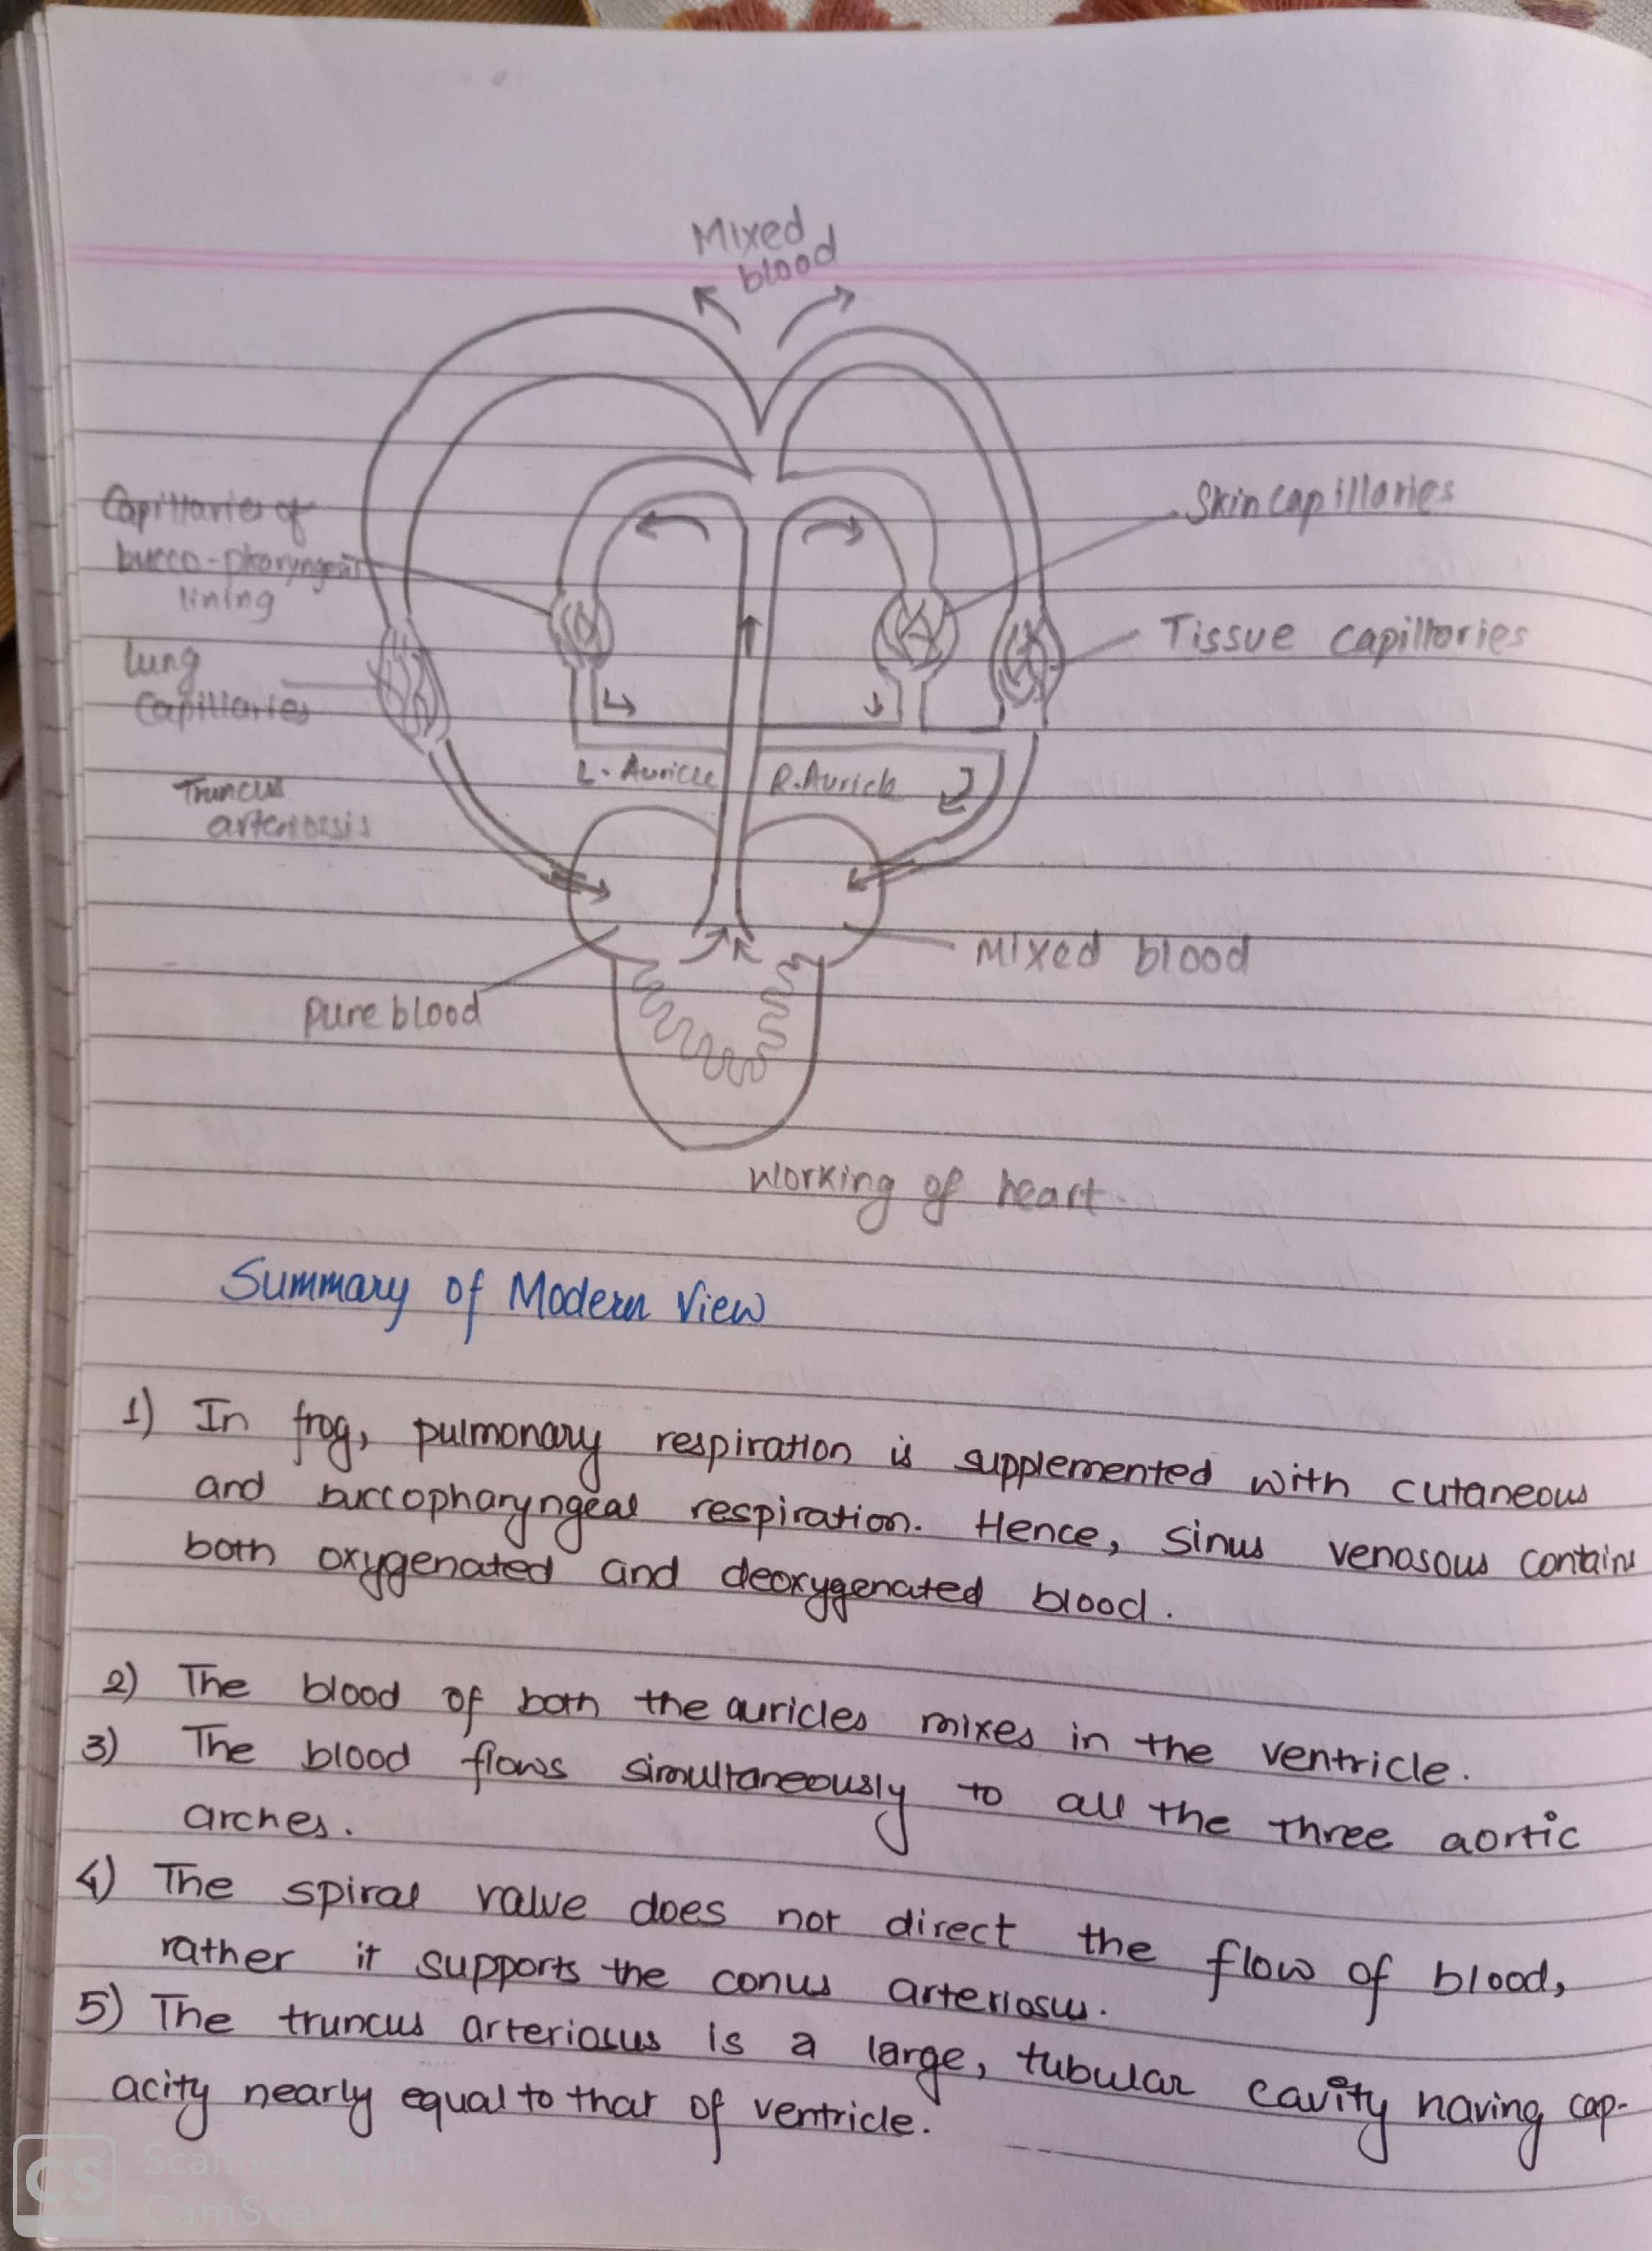 Mixed
blood
Capillaries of
bucco-pharyngeal
lining
Skin capillaries
Lung
Capillaries
Tissue capillaries
Truncus
arteriossis
L. Auricle
R. Auricle
Mixed blood
pure blood
Working of heart.
Summary of Modern View
1) In frog, pulmonary respiration is supplemented with cutaneous
and buccopharyngeal respiration. Hence, sinus venosous contains
both oxygenated and deoxygenated blood.
2) The blood of both the auricles mixes in the ventricle.
3) The blood flows simultaneously to all the three aortic
arches.
4) The spiral valve does not direct the flow of blood,
rather it supports the conus arteriosus.
5) The truncus arteriosus is a large, tubular cavity having cap-
acity nearly equal to that of ventricle.
CS
Scanned with
CamScanner